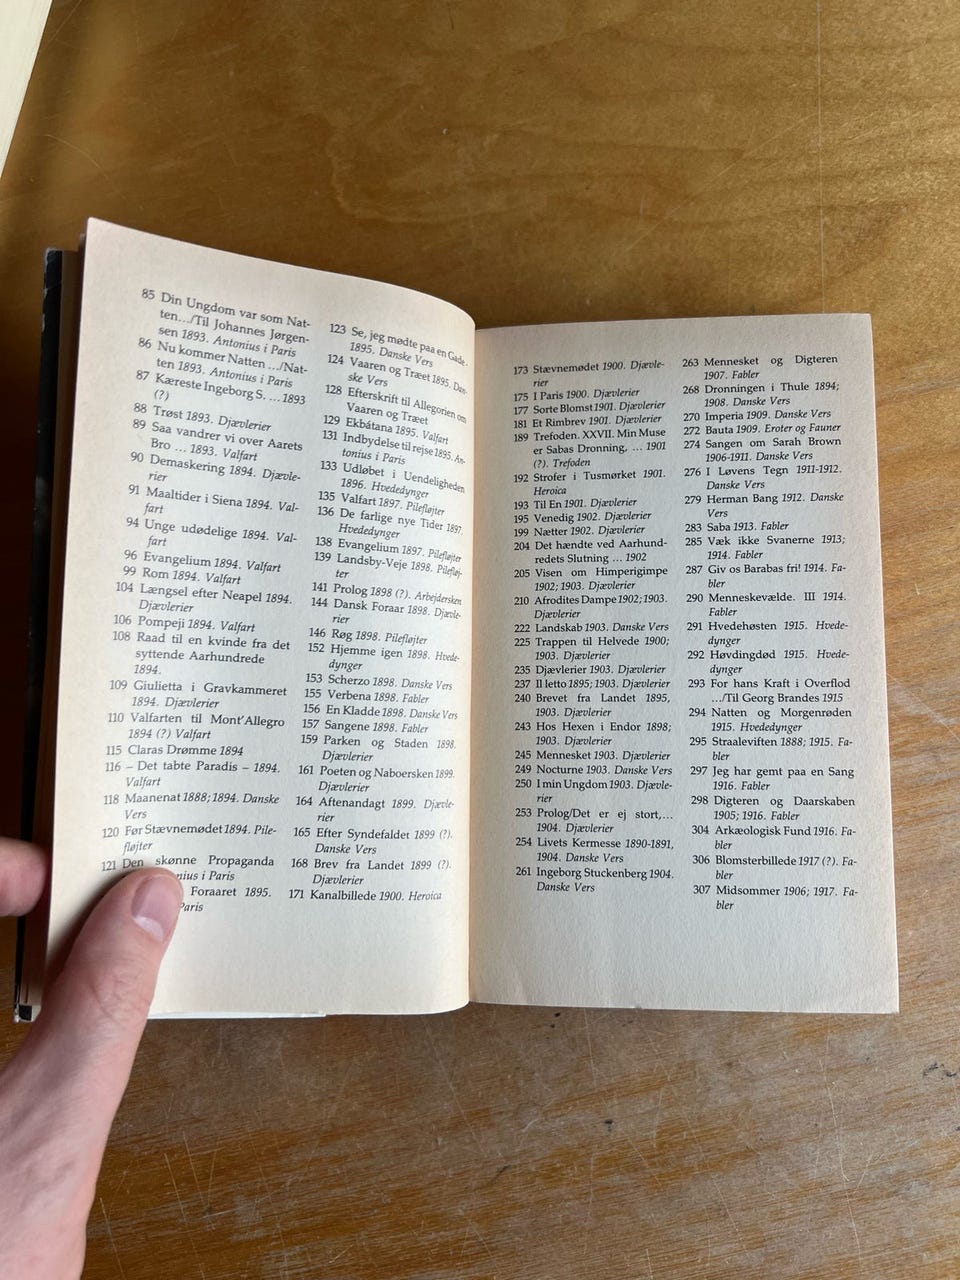 85 Din Ungdom var som Nat-
ten.../Til Johannes Jørgen-
sen 1893. Antonius i Paris
86 Nu kommer Natten .../Nat-
ten 1893. Antonius i Paris
87 Kæreste Ingeborg S. ... 1893
(?)
88 Trøst 1893. Djævlerier
89 Saa vandrer vi over Aarets
Bro ... 1893. Valfart
90 Demaskering 1894. Djævle-
rier
91 Maaltider i Siena 1894. Val-
fart
94 Unge udødelige 1894. Val-
fart
96 Evangelium 1894. Valfart
99 Rom 1894. Valfart
104 Længsel efter Neapel 1894.
Djævlerier
106 Pompeji 1894. Valfart
108 Raad til en kvinde fra det
syttende Aarhundrede
1894.
109 Giulietta i Gravkammeret
1894. Djævlerier
110 Valfarten til Mont'Allegro
1894 (?) Valfart
115 Claras Drømme 1894
116 – Det tabte Paradis – 1894.
Valfart
118 Maanenat 1888; 1894. Danske
Vers
120 Før Stævnemødet 1894. Pile-
fløjter
121 Den skønne Propaganda
nius i Paris
Foraaret 1895.
Paris
123 Se, jeg mødte paa en Gade.
1895. Danske Vers
124 Vaaren og Træet 1895. Dan-
ske Vers
128 Efterskrift til Allegorien om
Vaaren og Træet
129 Ekbátana 1895. Valfart
131 Indbydelse til rejse 1895. An-
tonius i Paris
133 Udløbet i Uendeligheden
1896. Hvededynger
135 Valfart 1897. Pilefløjter
136 De farlige nye Tider 1897.
Hvededynger
138 Evangelium 1897. Pilefløjter
139 Landsby-Veje 1898. Pilefløj-
ter
141 Prolog 1898 (?). Arbejdersken
144 Dansk Foraar 1898. Djævle-
rier
146 Røg 1898. Pilefløjter
152 Hjemme igen 1898. Hvede-
dynger
153 Scherzo 1898. Danske Vers
155 Verbena 1898. Fabler
156 En Kladde 1898. Danske Vers
157 Sangene 1898. Fabler
159 Parken og Staden 1898.
Djævlerier
161 Poeten og Naboersken 1899.
Djævlerier
164 Aftenandagt 1899. Djævle-
rier
165 Efter Syndefaldet 1899 (?).
Danske Vers
168 Brev fra Landet 1899 (?).
Djævlerier
171 Kanalbillede 1900. Heroica
173 Stævnemødet 1900. Djævle-
rier
175 I Paris 1900. Djævlerier
177 Sorte Blomst 1901. Djævlerier
181 Et Rimbrev 1901. Djævlerier
189 Trefoden. XXVII. Min Muse
er Sabas Dronning, ... 1901
(?). Trefoden
192 Strofer i Tusmørket 1901.
Heroica
193 Til En 1901. Djævlerier
195 Venedig 1902. Djævlerier
199 Nætter 1902. Djævlerier
204 Det hændte ved Aarhund-
redets Slutning ... 1902
205 Visen om Himperigimpe
1902; 1903. Djævlerier
210 Afrodites Dampe 1902; 1903.
Djævlerier
222 Landskab 1903. Danske Vers
225 Trappen til Helvede 1900;
1903. Djævlerier
235 Djævlerier 1903. Djævlerier
237 Il letto 1895; 1903. Djævlerier
240 Brevet fra Landet 1895,
1903. Djævlerier
243 Hos Hexen i Endor 1898;
1903. Djævlerier
245 Mennesket 1903. Djævlerier
249 Nocturne 1903. Danske Vers
250 I min Ungdom 1903. Djævle-
rier
253 Prolog/Det er ej stort,...
1904. Djævlerier
254 Livets Kermesse 1890-1891,
1904. Danske Vers
261 Ingeborg Stuckenberg 1904.
Danske Vers
263 Mennesket og Digteren
1907. Fabler
268 Dronningen i Thule 1894;
1908. Danske Vers
270 Imperia 1909. Danske Vers
272 Bauta 1909. Eroter og Fauner
274 Sangen om Sarah Brown
1906-1911. Danske Vers
276 I Løvens Tegn 1911-1912.
Danske Vers
279 Herman Bang 1912. Danske
Vers
283 Saba 1913. Fabler
285 Væk ikke Svanerne 1913;
1914. Fabler
287 Giv os Barabas fri! 1914. Fa-
bler
290 Menneskevælde. III 1914.
Fabler
291 Hvedehøsten 1915. Hvede-
dynger
292 Høvdingdød 1915. Hvede-
dynger
293 For hans Kraft i Overflod
.../Til Georg Brandes 1915
294 Natten og Morgenrøden
1915. Hvededynger
295 Straaleviften 1888; 1915. Fa-
bler
297 Jeg har gemt paa en Sang
1916. Fabler
298 Digteren og Daarskaben
1905; 1916. Fabler
304 Arkæologisk Fund 1916. Fa-
bler
306 Blomsterbillede 1917 (?). Fa-
bler
307 Midsommer 1906; 1917. Fa-
bler